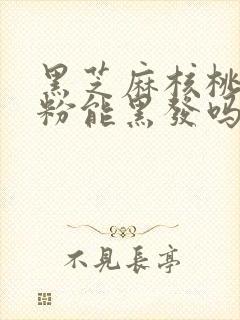 黑芝麻核桃
粉能黑發吗
不見長亭